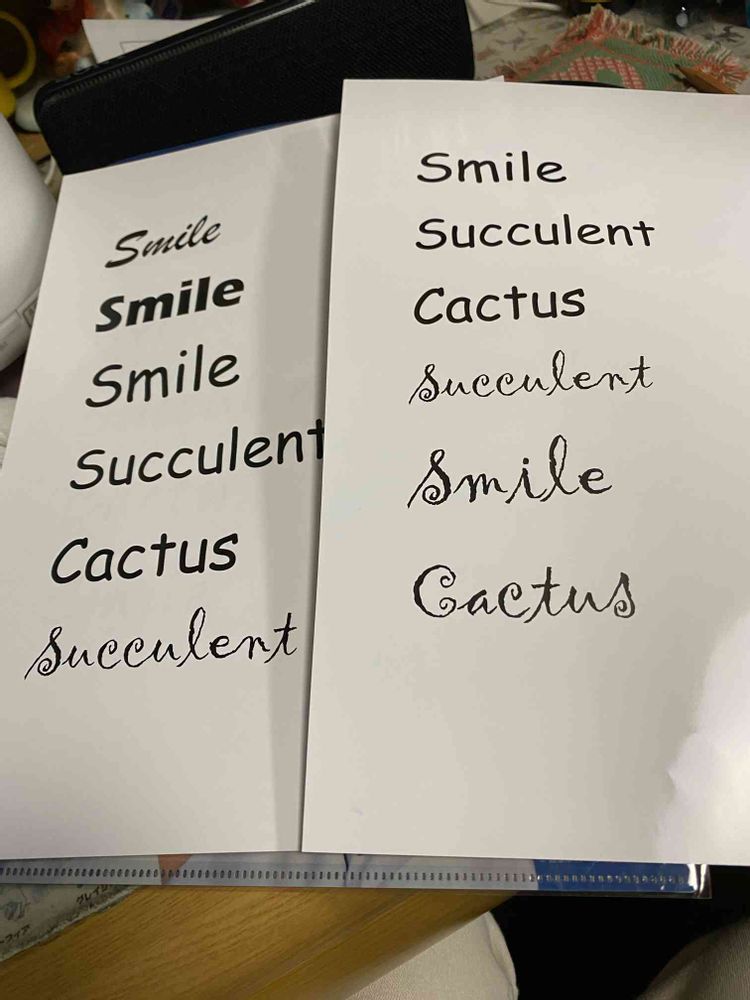 Smile
Smile
Smile
Succulent
Cactus
Succulent
Smile
Succulent
Cactus
Succulent
Smile
Cactus